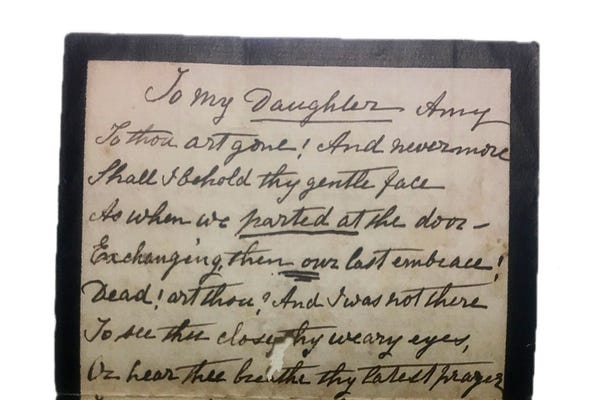 To my Daughter Amy
To thou art gone! And nevermore
Shall I behold thy gentle face
As when we parted at the door -
Exchanging, then our last embrace!
Dead! art thou? And I was not there
To see thee close thy weary eyes,
Or hear thee breathe thy latest prayer